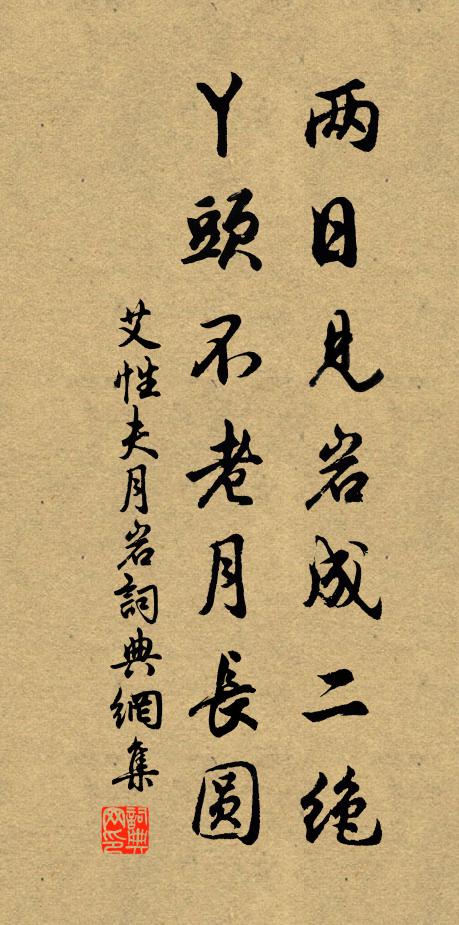 两日見岩成二绝
丫頭不老月長圆
艾性夫月岩詞典網集
詞典网印